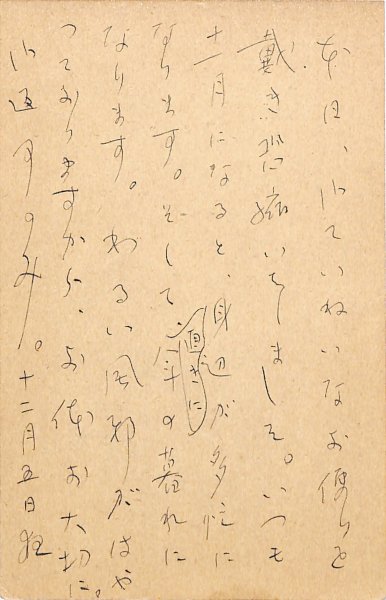 本日、御ていねいなお便りを
戴き恐縮いたしました。いつも
十一月になると、身辺が多忙に
なります。そして、直ぎに年の暮れに
なります。わるい風邪がはや
つておりますから、お体お大切に。
御返事のみ。十二月五日夜